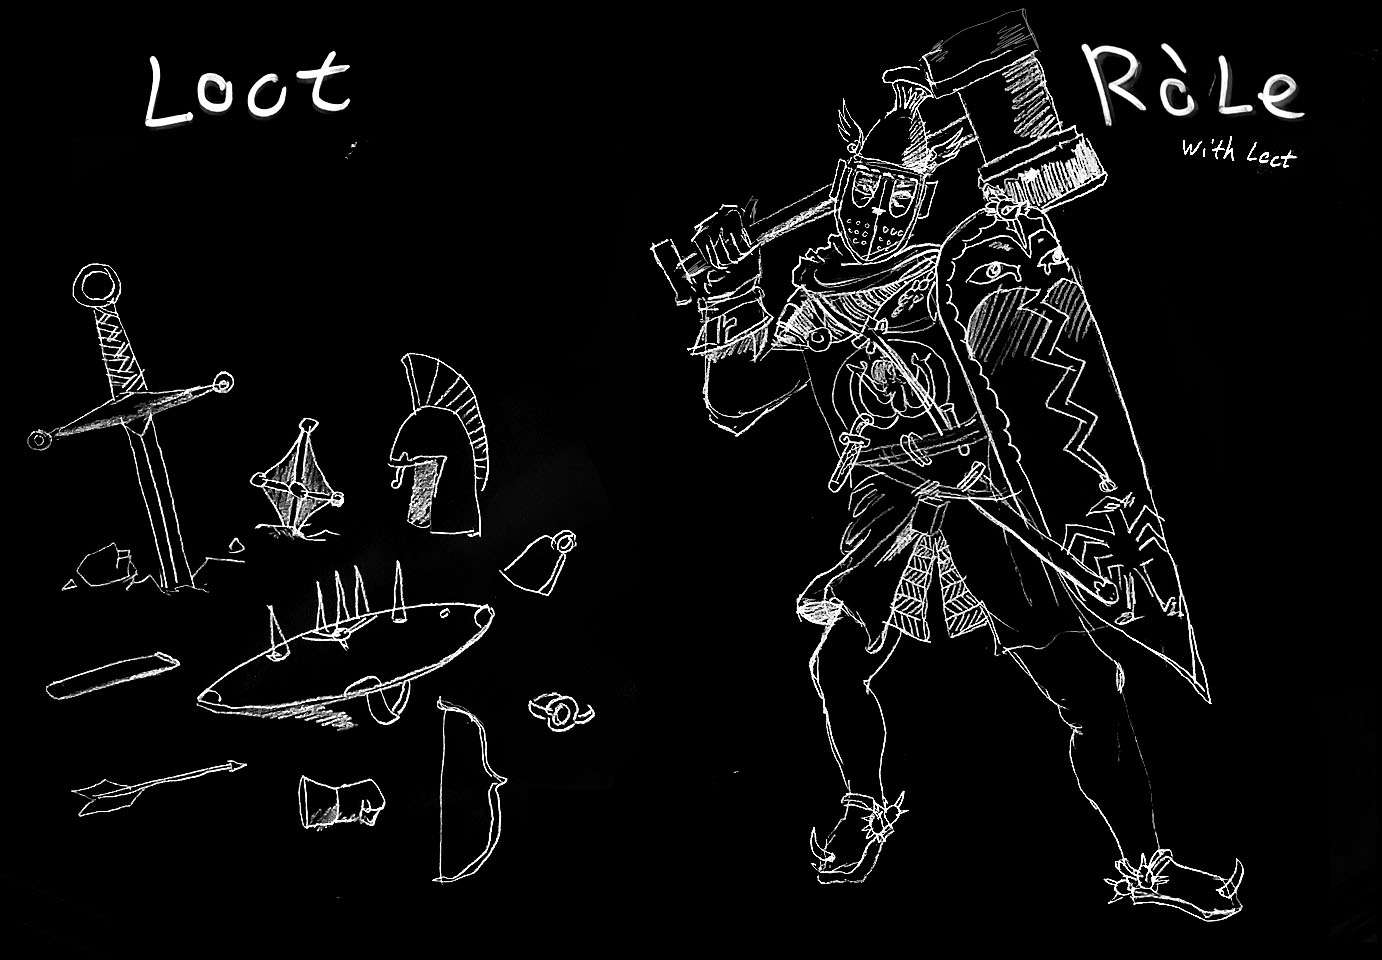 Loot
RòLe
with Loot